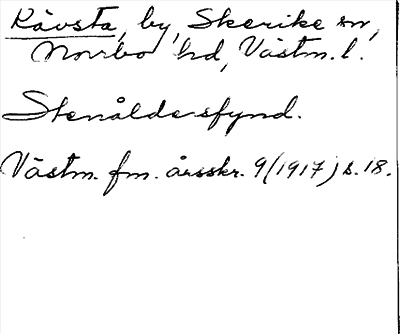 Rävsta, by, Skerike sn,
Norrbo hd, Västm. l.
Stenåldersfynd.
Västm. fm. årsskr. 9 (1917) s. 18.